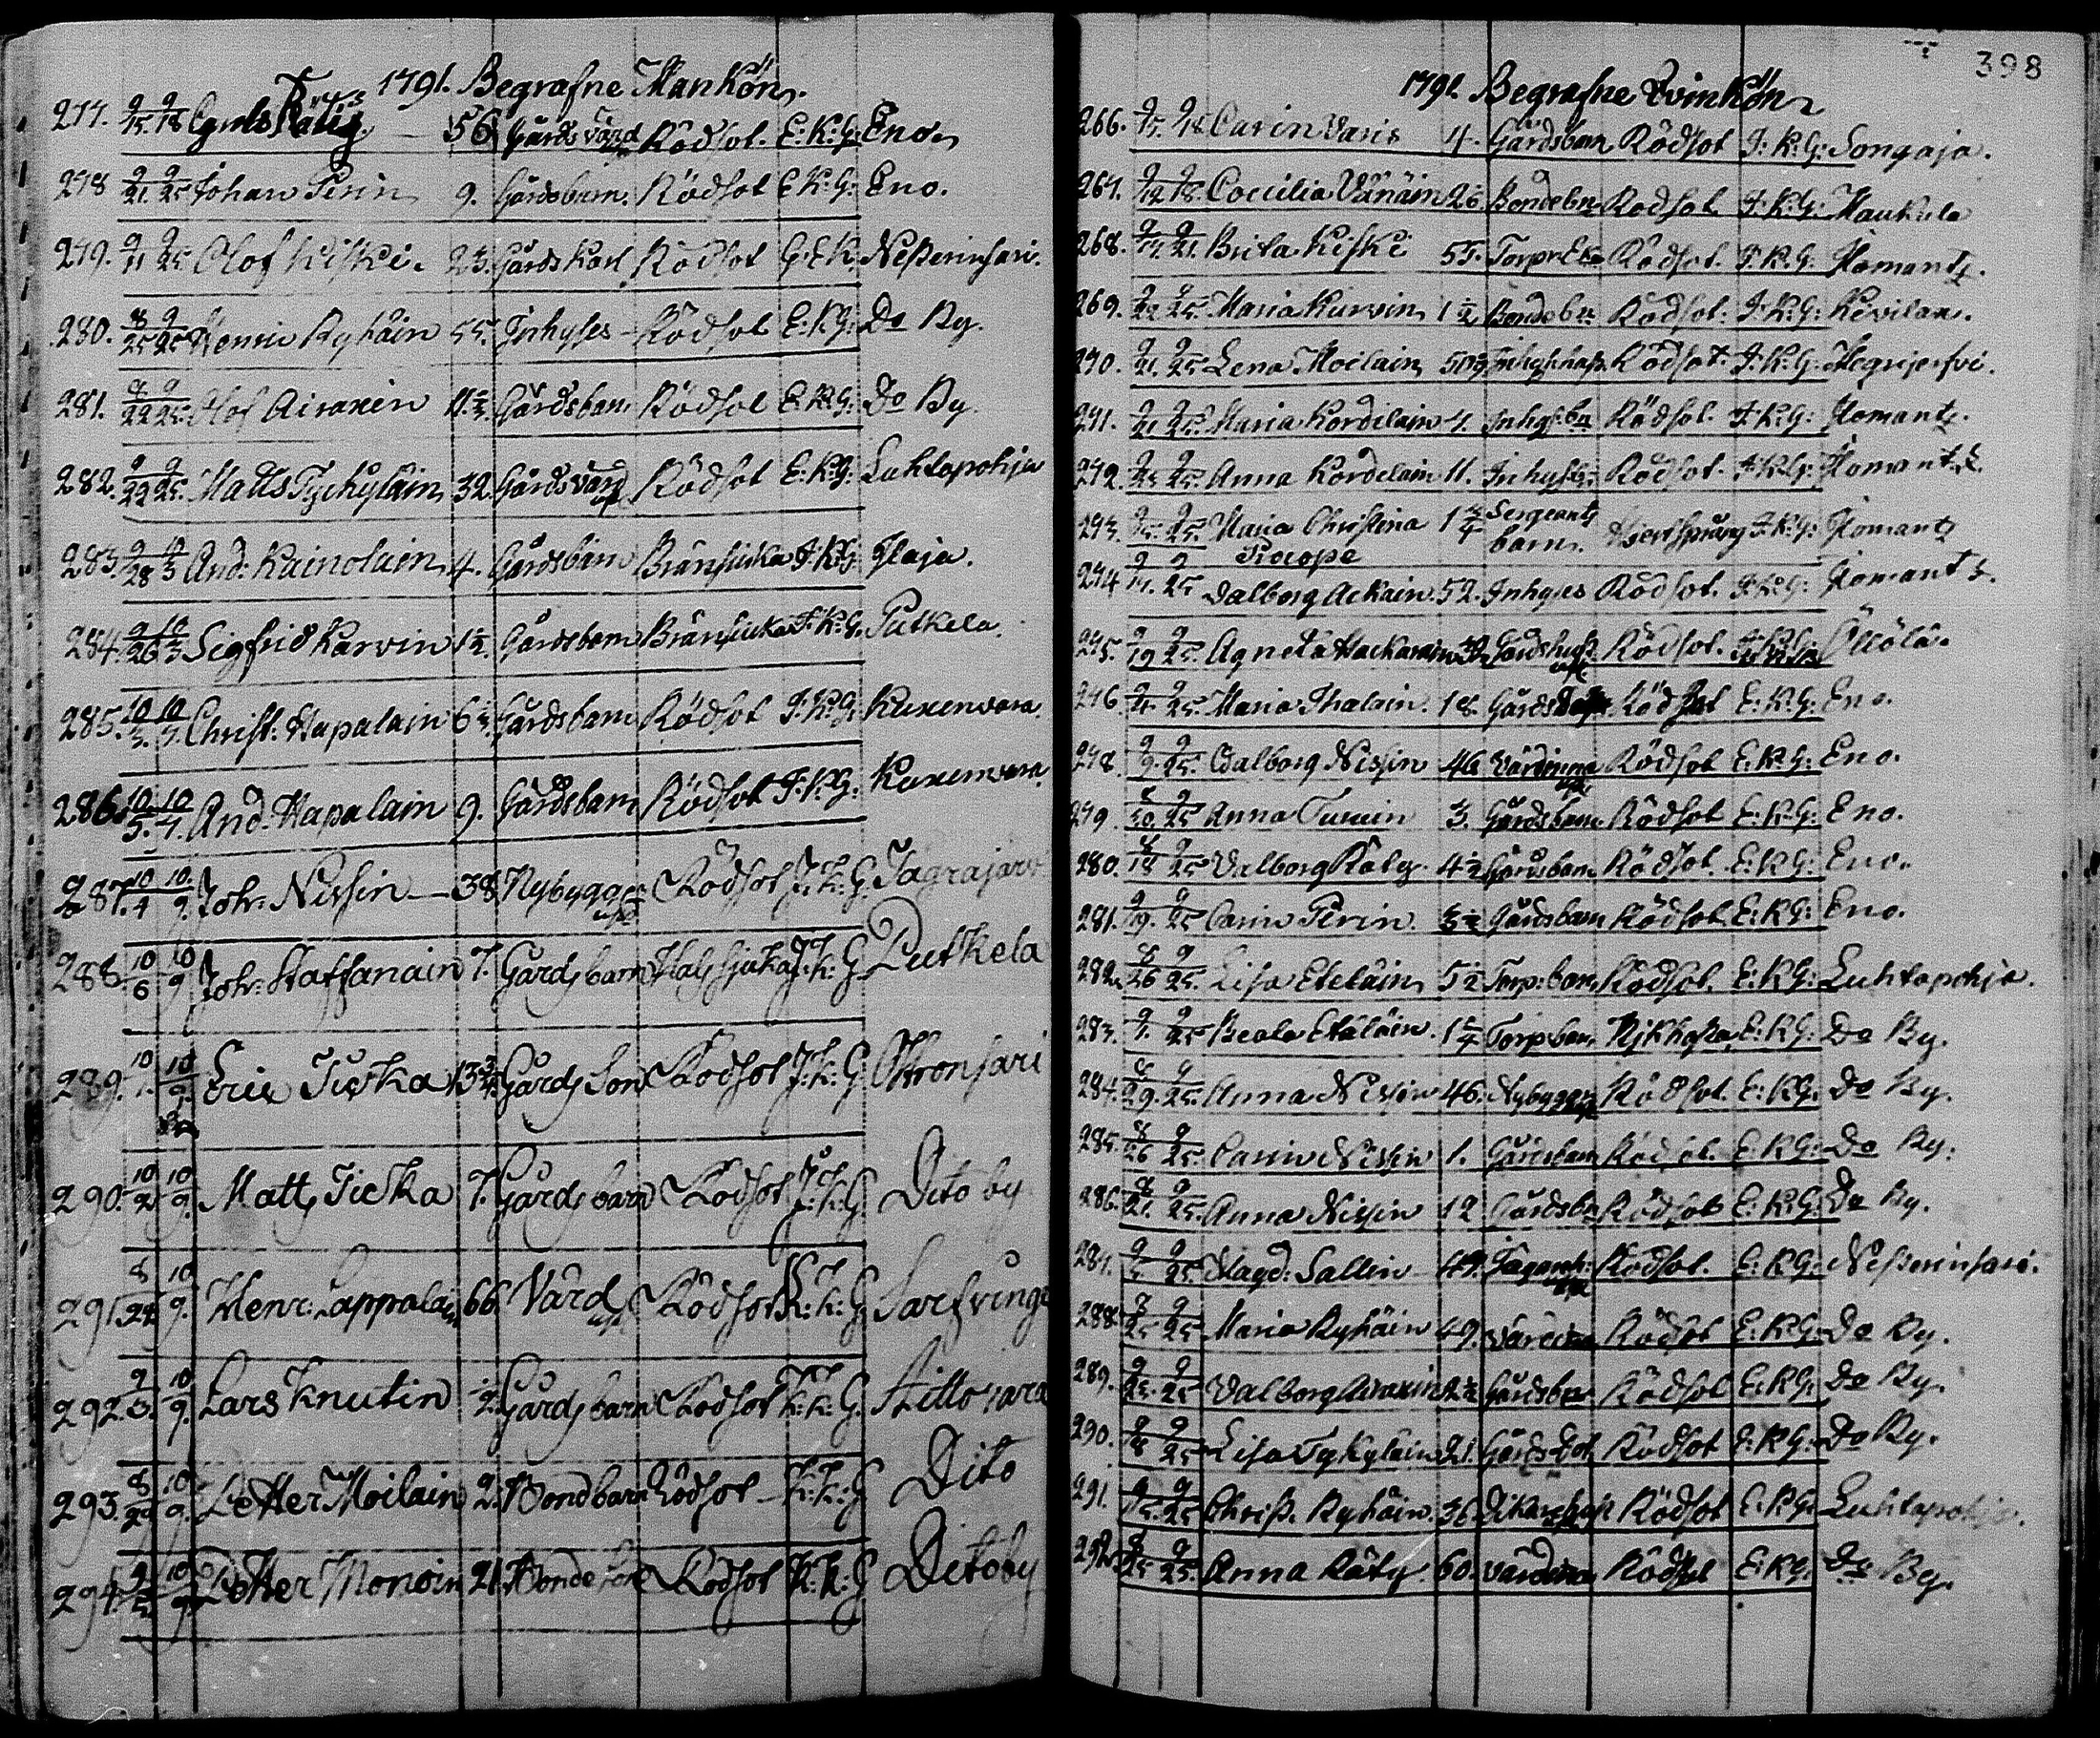 1791. Begrafne Mankön.
277. 9/15. 9/18 Rätig 56 Gårds värd Rödsot. E: K: G: Eno
278 9/21. 9/25 Johan Pirin 9. Gårdsbarn. Rödsot E: K: G: Eno.
279. 9/21 9/25 Olof Kiski. 23. Gårds Karl Rödsot G: E: K: Neßerinsari.
280. 8/25 9/25 Henric Ryhäin 55. Inhyses Rödsot E: K: G: Do By.
281. 9/22 9/25. Olof Airaxin 11 Gårdsbarn Rödsot E: K: G: Do By.
282. 9/22 9/25. Matts Tychyläin 32. Gårds värd Rödsot E: K: G: Luhtapohja
283. 9/28 10/3 And: Kainolain 4. Gårdsbarn Bränsiuka I: K: G: Ilaja.
284. 9/26 10/3 Sigfrid Karvin 1½. Gårdsbarn Bränsiuka I: K: G. Putkela.
285. 10/3. 10/7. Christ: Hapalain 6½ Gårdsbarn Rödsot I: K: G: Kuxenvara.
286. 10/5. 10/7. And. Hapalain 9. Gårdsbarn Rödsot I: K: G: Kuxenvara.
287. 10/4 10/9. Joh: Nissin — 38 Nybygg Rödsot I: K: G.
288. 10/6 10/9 Joh: Staffanain 7. Gårdsbarn Halssjuka I: K: G Putkela
289. 10/1. 10/9. Eric Ticka 13¾ Gårds Son Rödsot I: K: G
290. 10/2 10/9. Matts Ticka 7. Gårdsbarn Rödsot I: K: G. Dito by
291. 8/24 10/9. Henr: Lappalain 66. Värd Rödsot K: K: G. Sarfvinge
292. 9/3. 10/9. Lars Knutin ½. Gårdsbarn Rödsot K: K: G.
293. 8/29 10/9. Petter Moilain 2. Bondbarn Rödsot K: K: G Dito
294. 9/5 10/9. Petter Monoin 21. Bonde son Rödsot K: K: G Dito by
398
1791. Begrafne Qvinkön
266. 9/15. 9/18 Carin Varis 4. Gårdsbarn Rödsot I: K: G: Songaja.
267. 9/12 9/18. Coecilia Vänäin Bondebn Rödsot I: K: G: Maukula
268. 9/17. 9/21. Brita Kiski 55. Rödsot. I: K: G. Ilomants.
269. 9/22 9/25 Maria Kurvin 1½ Bondebn Rödsot. I: K: G: Kivilax.
270. 9/21. 9/25 Lena Moilain Rödsot. I: K: G:
271. 9/21 9/25. Maria Kordelain 4. Inhys bn Rödsot. I: K: G: Ilomants.
272. 9/23 9/25. Anna Kordelain 11. Inhyses Rödsot. I: K: G: Ilomants.
273. 9/15. 9/25. Maria Christina 1¾ Sergeants I: K: G: Ilomants
Procope barn.
274 9/17. 9/25 Valborg Ackain 52. Inhyses Rödsot. I: K: G: Ilomants.
275. 9/19 9/25. Agneta Rödsot. Öllölä.
276. 9/21. 9/25. Maria Ihalain. 18. Rödsot E: K: G: Eno.
278. 9/9. 9/25. Valborg Nissin 46 Värdinna Rödsot E: K: G: Eno.
279. 8/30. 9/25 Anna Turuin 3. Gårdsbarn Rödsot E: K: G: Eno.
280. 9/25 Valborg Räty. 4½ Gårdsbarn Rödsot. E: K: G: Eno.
281. 9/19. 9/25 Carin Pirin. 3½ Gårdsbarn Rödsot E: K: G: Eno.
282. 8/26 9/25. Lisa Eteläin 5½ Torp: barn Rödsot. E: K: G: Luhtapohja.
283. 9/1. 9/25 Beata Eteläin. 1¼ Torpbarn Kikhosta E: K: G: Do By.
284. 8/29. 9/25. Anna Nissin 46. Rödsot. E: K: G: Do By.
285. 8/26 9/25. Carin Nissin 1. Gårdsbarn Rödsot. E: K: G: Do By.
286. 8/21. 9/25. Anna Nissin 12 Gårdsbn Rödsot E: K: G: Do By.
287. 9/25 Magd: Sallin 47. Rödsot. E: K: G: Neßerinsari.
288. 8/25 9/25 Maria Ryhäin 49. Värdina Rödsot E: K: G: Do By.
289. 9/25 Valborg Airaxin 2½ Gårdsbn Rödsot E: K: G: Do By.
290. 9/25 Lisa Tykyläin 21. Gårds Dot. Rödsot E: K: G: Do By.
291. 9/15. 9/25 Christ. Ryhäin. 36. Rödsot E: K: G: Luhtapohja.
292. 9/25. Anna Räty. 60. Värdina Rödsot E: K: G. Do By.